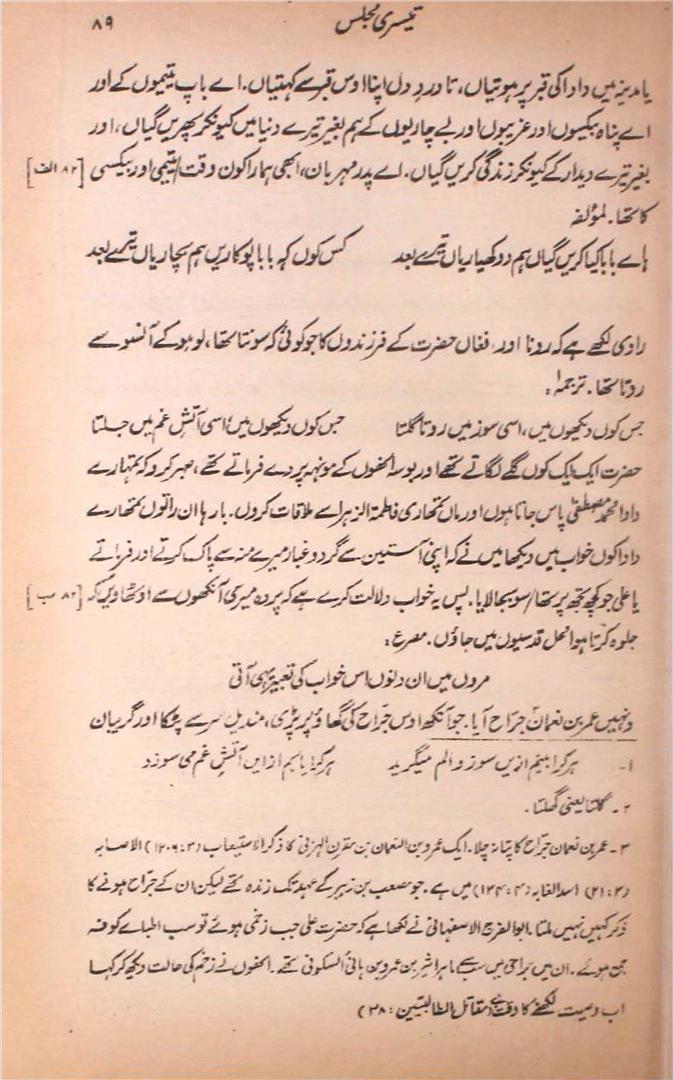 تیسری مجلس
۸۹
یا مدینہ میں دادا کی قبر پر ہوتیاں، تا دردِ دل اپنا اوس قبر سے کہتیاں. اے باپ یتیموں کے اور
اے پناہ بیکسیوں اور غریبوں اور بے چاریوں کے ہم بغیر تیرے دنیا میں کیونکر پھریں گیاں، اور
بغیر تیرے دیدار کے کیونکر زندگی کریں گیاں. اے پدر مہربان، ابھی ہمارا کون وقت/یتیمی اور بیکسی [۸۲ الف]
کا تھا. لمؤلفہ
ہاے بابا کیا کریں گیاں ہم دوکھیاریاں تیرے بعد کس کوں کہ بابا پوکاریں ہم بچاریاں تیرے بعد
راوی لکھے ہے کہ رونا اور فغاں حضرت کے فرزندوں کا جو کوئی کہ سونتا تھا، لوہو کے آنسو سے
روتا تھا. ترجمہ۱:
جس کوں دیکھوں میں، اسی سوز میں روتا گلتا جس کوں دیکھوں میں، اسی آتشِ غم میں جلتا
حضرت ایک ایک کوں گلے لگاتے تھے اور بوسہ انھوں کے مونہہ پر دے فرماتے تھے، صبر کرو کہ تمہارے
دادا محمد مصطفیٰ پاس جاتا ہوں اور ماں تمھاری فاطمۃ الزہرا سے ملاقات کروں. بارہا ان راتوں تمھارے
دادا کوں خواب میں دیکھا میں نے کہ اپنی آستین سے گرد و غبار میرے منہ سے پاک کرتے اور فرماتے
یا علی جو کچھ تجھ پر تھا/سو بجا لایا. پس یہ خواب دلالت کرے ہے کہ پردہ میری آنکھوں سے اوٹھاویں کہ [۸۲ ب]
جلوہ کرتا ہوا محل قدسیوں میں جاؤں. مصرع:
مروں میں ان دنوں اس خواب کی تعبیر یہی آتی
ونہیں عمر بن نعمان جراح آیا. جو آنکھ اوس جراح کی گھاؤ پر پڑی، مندیل سر سے پٹکا اور گریبان
۱۔ ہر کرا بینم ازیں سوز و الم میگرید ہر کرا یابم ازایں آتشِ غم می سوزد
۲۔ گلتا یعنی گھلتا.
۳۔ عمر بن نعمان جراح کا پتا نہ چلا. ایک عمرو بن النعمان بن مقرن المزنی کا ذکر الاستیعاب (۳: ۱۲۰۶) الاصابہ
(۳: ۲۱) اسد الغابہ (۴: ۱۳۴) میں ہے. جو مصعب بن زبیر کے عہد تک زندہ تھے لیکن ان کے جراح ہونے کا
ذکر کہیں نہیں ملتا. ابوالفرج الاصفہانی نے لکھا ہے کہ حضرت علی جب زخمی ہوئے تو سب اطباے کوفہ
جمع ہوئے. ان میں جراحی میں سب سے ماہر اثیر بن عمرو بن ہانی السکونی تھے. انھوں نے زخم کی حالت دیکھ کر کہا
اب وصیت لکھنے کا وقت ہے (مقاتل الطالبیین: ۳۸)